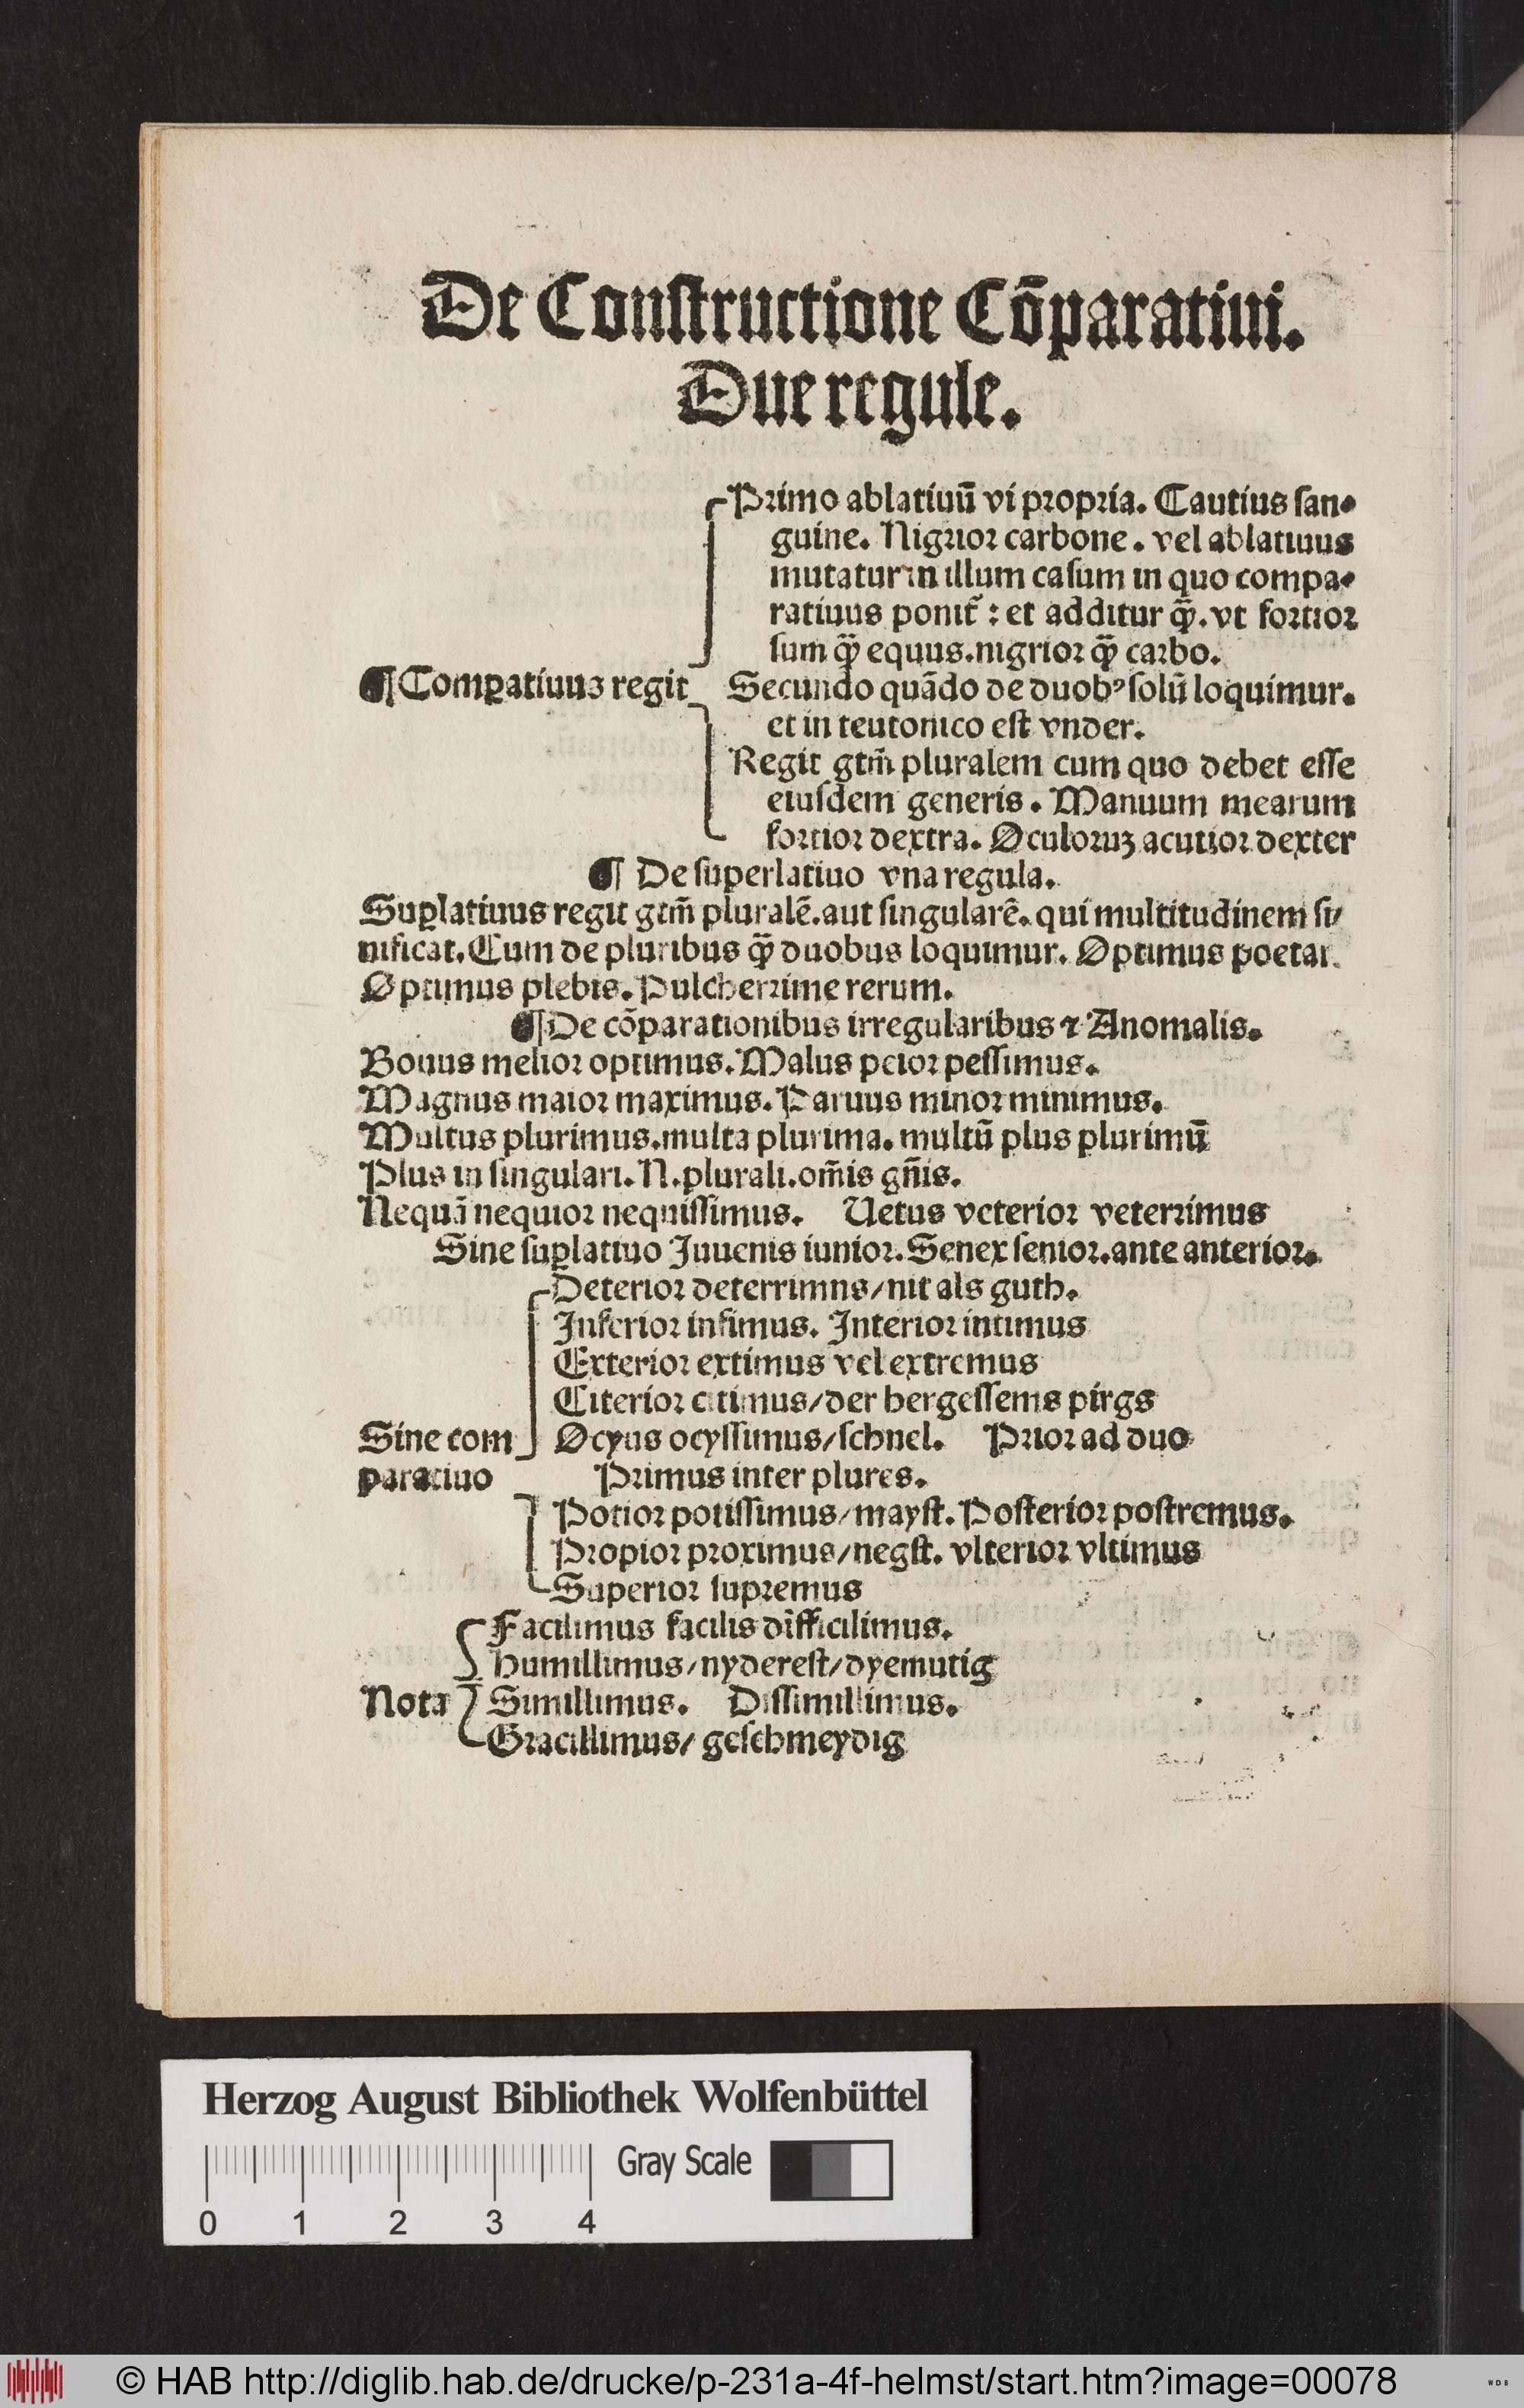 De Conſtructione Cōparatiui.
Due regule.
Primo ablatiuū vi propria. Cautius ſan⸗
guine. Nigrior carbone. vel ablatiuus
mutatur in illum caſum in quo compa⸗
ratiuus ponit᷑ : et additur qꝫ̄. vt fortior
ſum qꝫ̄ equus. nigrior qꝫ̄ carbo.
¶ Comꝑatiuuꝫ regit Secundo quādo de duobꝰ ſolū loquimur.
et in teutonico eſt vnder.
Regit gtm̄ pluralem cum quo debet eſſe
eiuſdem generis. Manuum mearum
fortior dextra. Oculoruꝫ acutior dexter
¶ De ſuperlatiuo vna regula.
Suꝑlatiuus regit gtm̄ pluralē. aut ſingularē. qui multitudinem ſi/
nificat. Cum de pluribus qꝫ̄ duobus loquimur. Optimus poetar.
Optimus plebis. Pulcherrime rerum.
¶ De cōparationibus irregularibus ⁊ Anomalis.
Bouus melior optimus. Malus peior peſſimus.
Magnus maior maximus. Paruus minor minimus.
Multus plurimus. multa plurima. multū plus plurimū
Plus in ſingulari. N. plurali. om̄is gn̄is.
Nequā nequior nequiſſimus. Uetus veterior veterrimus
Sine ſuꝑlatiuo Juuenis iunior. Senex ſenior. ante anterior.
Deterior deterrimns/ nit als guth.
Inferior infimus. Interior intimus
Exterior extimus vel extremus
Citerior citimus/ der hergeſſems pirgs
Sine com Ocyus ocyſſimus/ ſchnel. Prior ad duo
paratiuo Primus inter plures.
Potior potiſſimus/ mayſt. Poſterior poſtremus.
Propior proximus/ negſt. vlterior vltimus
Superior ſupremus
Facilimus facilis difficilimus.
humillimus/ nydereſt/ dyemutig
Nota Simillimus. Diſſimillimus.
Gracillimus/ geſchmeydig
Herzog August Bibliothek Wolfenbüttel
Gray Scale
0 1 2 3 4
© HAB http://diglib.hab.de/drucke/p-231a-4f-helmst/start.htm?image=00078
WDB